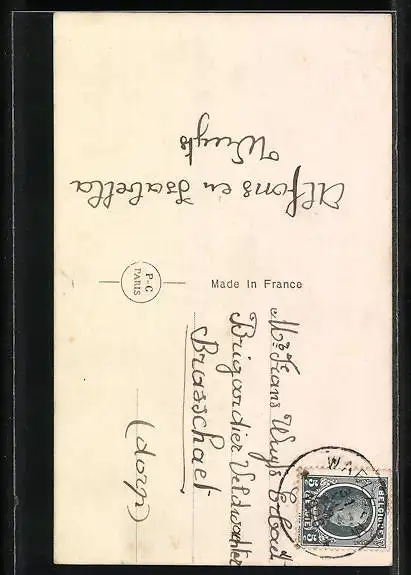 Alfons en Isabella
Wuyts
P-C
PARIS
Made In France
Mr Frans Wuyts
Brigardier Veldwachter
Brasschaet
(dorp)
BELGIQUE
5c 5c
BELGIË